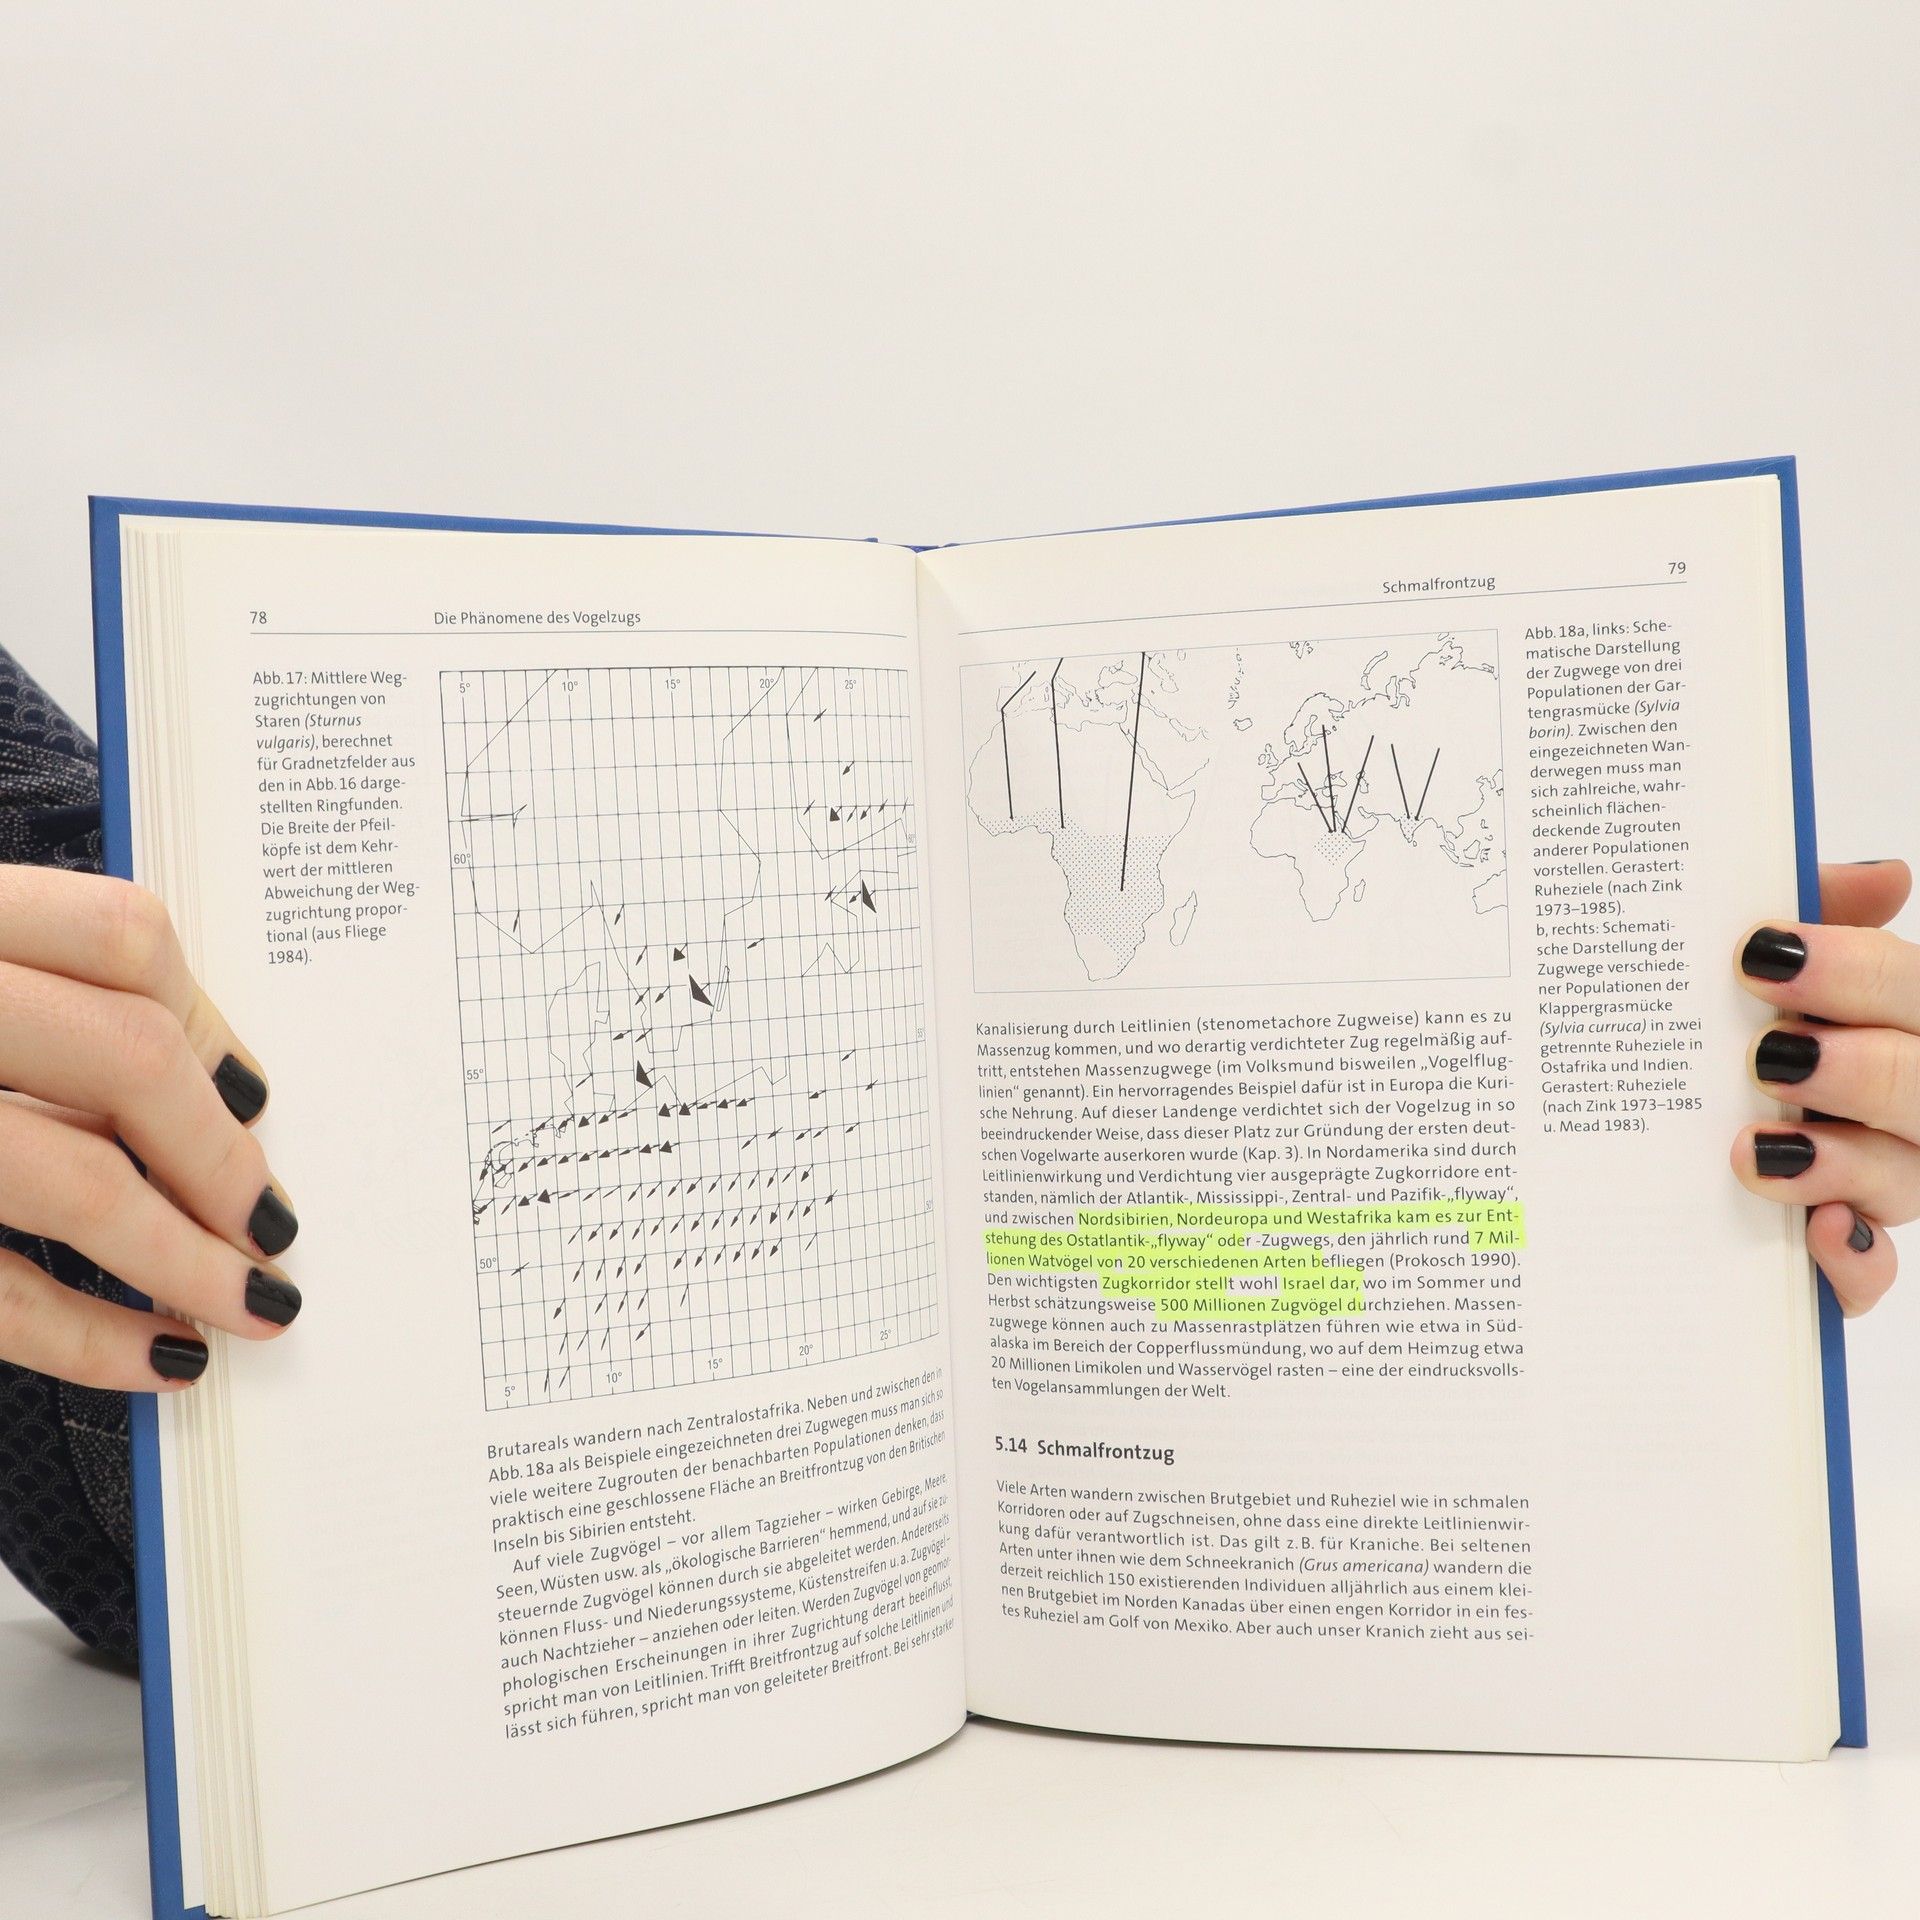 78
Die Phänomene des Vogelzugs
Abb. 17: Mittlere Weg-
zugrichtungen von
Staren (Sturnus
vulgaris), berechnet
für Gradnetzfelder aus
den in Abb. 16 darge-
stellten Ringfunden.
Die Breite der Pfeil-
köpfe ist dem Kehr-
wert der mittleren
Abweichung der Weg-
zugrichtung propor-
tional (aus Fliege
1984).
5° 10° 15° 20° 25°
60° 60°
55° 55°
50° 50°
5° 10° 15° 20° 25°
Brutareals wandern nach Zentralostafrika. Neben und zwischen den in
Abb. 18a als Beispiele eingezeichneten drei Zugwegen muss man sich so
viele weitere Zugrouten der benachbarten Populationen denken, dass
praktisch eine geschlossene Fläche an Breitfrontzug von den Britischen
Inseln bis Sibirien entsteht.
Auf viele Zugvögel – vor allem Tagzieher – wirken Gebirge, Meere,
Seen, Wüsten usw. als „ökologische Barrieren“ hemmend, und auf sie zu-
steuernde Zugvögel können durch sie abgeleitet werden. Andererseits
können Fluss- und Niederungssysteme, Küstenstreifen u. a. Zugvögel –
auch Nachtzieher – anziehen oder leiten. Werden Zugvögel von geomor-
phologischen Erscheinungen in ihrer Zugrichtung derart beeinflusst,
spricht man von Leitlinien. Trifft Breitfrontzug auf solche Leitlinien und
lässt sich führen, spricht man von geleiteter Breitfront. Bei sehr starker
Schmalfrontzug
79
Abb. 18a, links: Sche-
matische Darstellung
der Zugwege von drei
Populationen der Gar-
tengrasmücke (Sylvia
borin). Zwischen den
eingezeichneten Wan-
derwegen muss man
sich zahlreiche, wahr-
scheinlich flächen-
deckende Zugrouten
anderer Populationen
vorstellen. Gerastert:
Ruheziele (nach Zink
1973–1985).
b, rechts: Schemati-
sche Darstellung der
Zugwege verschiede-
ner Populationen der
Klappergrasmücke
(Sylvia curruca) in zwei
getrennte Ruheziele in
Ostafrika und Indien.
Gerastert: Ruheziele
(nach Zink 1973–1985
u. Mead 1983).
Kanalisierung durch Leitlinien (stenometachore Zugweise) kann es zu
Massenzug kommen, und wo derartig verdichteter Zug regelmäßig auf-
tritt, entstehen Massenzugwege (im Volksmund bisweilen „Vogelflug-
linien“ genannt). Ein hervorragendes Beispiel dafür ist in Europa die Kuri-
sche Nehrung. Auf dieser Landenge verdichtet sich der Vogelzug in so
beeindruckender Weise, dass dieser Platz zur Gründung der ersten deut-
schen Vogelwarte auserkoren wurde (Kap. 3). In Nordamerika sind durch
Leitlinienwirkung und Verdichtung vier ausgeprägte Zugkorridore ent-
standen, nämlich der Atlantik-, Mississippi-, Zentral- und Pazifik-„flyway“,
und zwischen Nordsibirien, Nordeuropa und Westafrika kam es zur Ent-
stehung des Ostatlantik-„flyway“ oder -Zugwegs, den jährlich rund 7 Mil-
lionen Watvögel von 20 verschiedenen Arten befliegen (Prokosch 1990).
Den wichtigsten Zugkorridor stellt wohl Israel dar, wo im Sommer und
Herbst schätzungsweise 500 Millionen Zugvögel durchziehen. Massen-
zugwege können auch zu Massenrastplätzen führen wie etwa in Süd-
alaska im Bereich der Copperflussmündung, wo auf dem Heimzug etwa
20 Millionen Limikolen und Wasservögel rasten – eine der eindrucksvolls-
ten Vogelansammlungen der Welt.
5.14 Schmalfrontzug
Viele Arten wandern zwischen Brutgebiet und Ruheziel wie in schmalen
Korridoren oder auf Zugschneisen, ohne dass eine direkte Leitlinienwir-
kung dafür verantwortlich ist. Das gilt z. B. für Kraniche. Bei seltenen
Arten unter ihnen wie dem Schneekranich (Grus americana) wandern die
derzeit reichlich 150 existierenden Individuen alljährlich aus einem klei-
nen Brutgebiet im Norden Kanadas über einen engen Korridor in ein fes-
tes Ruheziel am Golf von Mexiko. Aber auch unser Kranich zieht aus sei-